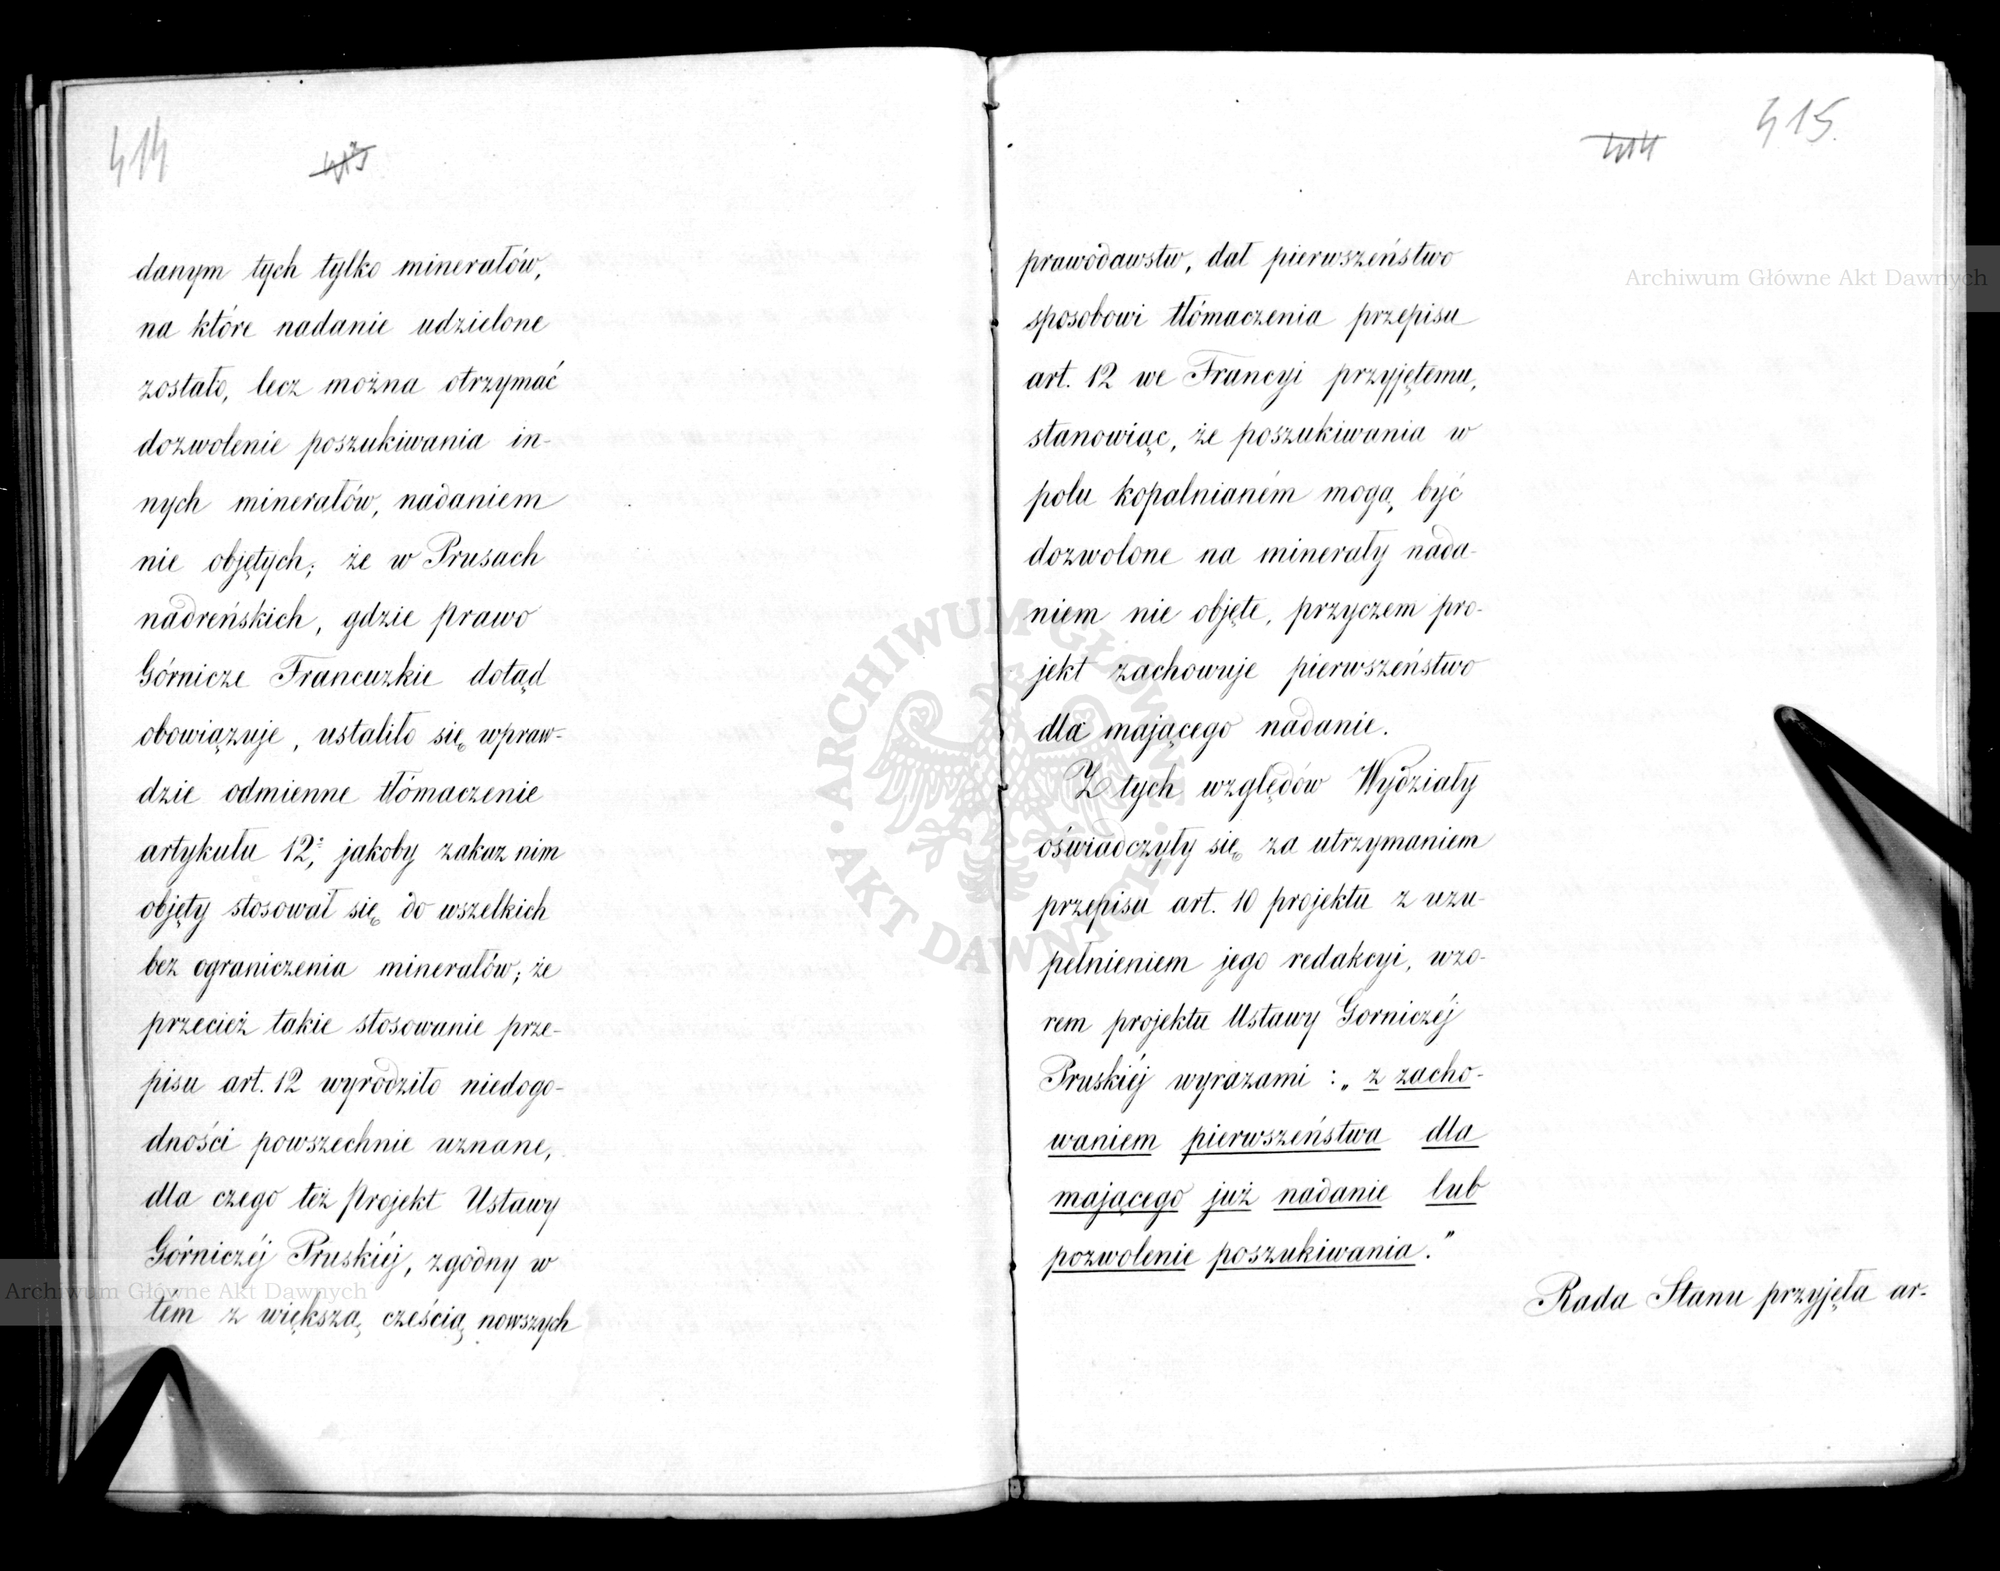 414
413
danym tych tylko minerałów,
na które nadanie udzielone
zostało, lecz można otrzymać
dozwolenie poszukiwania in-
nych minerałów, nadaniem
nie objętych; że w Prusach
nadreńskich, gdzie prawo
Górnicze Francuzkie dotąd
obowiązuje, ustaliło się wpraw-
dzie odmienne tłómaczenie
artykułu 12, jakoby zakaz nim
objęty stosował się do wszelkich
bez ograniczenia minerałów; że
przecież takie stosowanie prze-
pisu art. 12 wyrodziło niedogo-
dności powszechnie uznane,
dla czego też projekt Ustawy
Górniczéj Pruskiéj, zgodny w
tem z większą cześcią nowszych
414
415.
prawodawstw, dał pierwszeństwo
sposobowi tłómaczenia przepisu
art. 12 we Francyi przyjętemu,
stanowiąc, że poszukiwania w
polu kopalnianém mogą być
dozwolone na minerały nada-
niem nie objęte, przyczem pro-
jekt zachowuje pierwszeństwo
dla mającego nadanie.
Z tych względów Wydziały
oświadczyły się za utrzymaniem
przepisu art. 10 projektu z uzu-
pełnieniem jego redakcyi, wzo-
rem projektu Ustawy Gorniczéj
Pruskiéj wyrazami: „z zacho-
waniem pierwszeństwa dla
mającego już nadanie lub
pozwolenie poszukiwania."
Rada Stanu przyjęła ar-
Archiwum Główne Akt Dawnych
Archiwum Główne Akt Dawnych
ARCHIWUM GŁÓWNE
AKT DAWNYCH